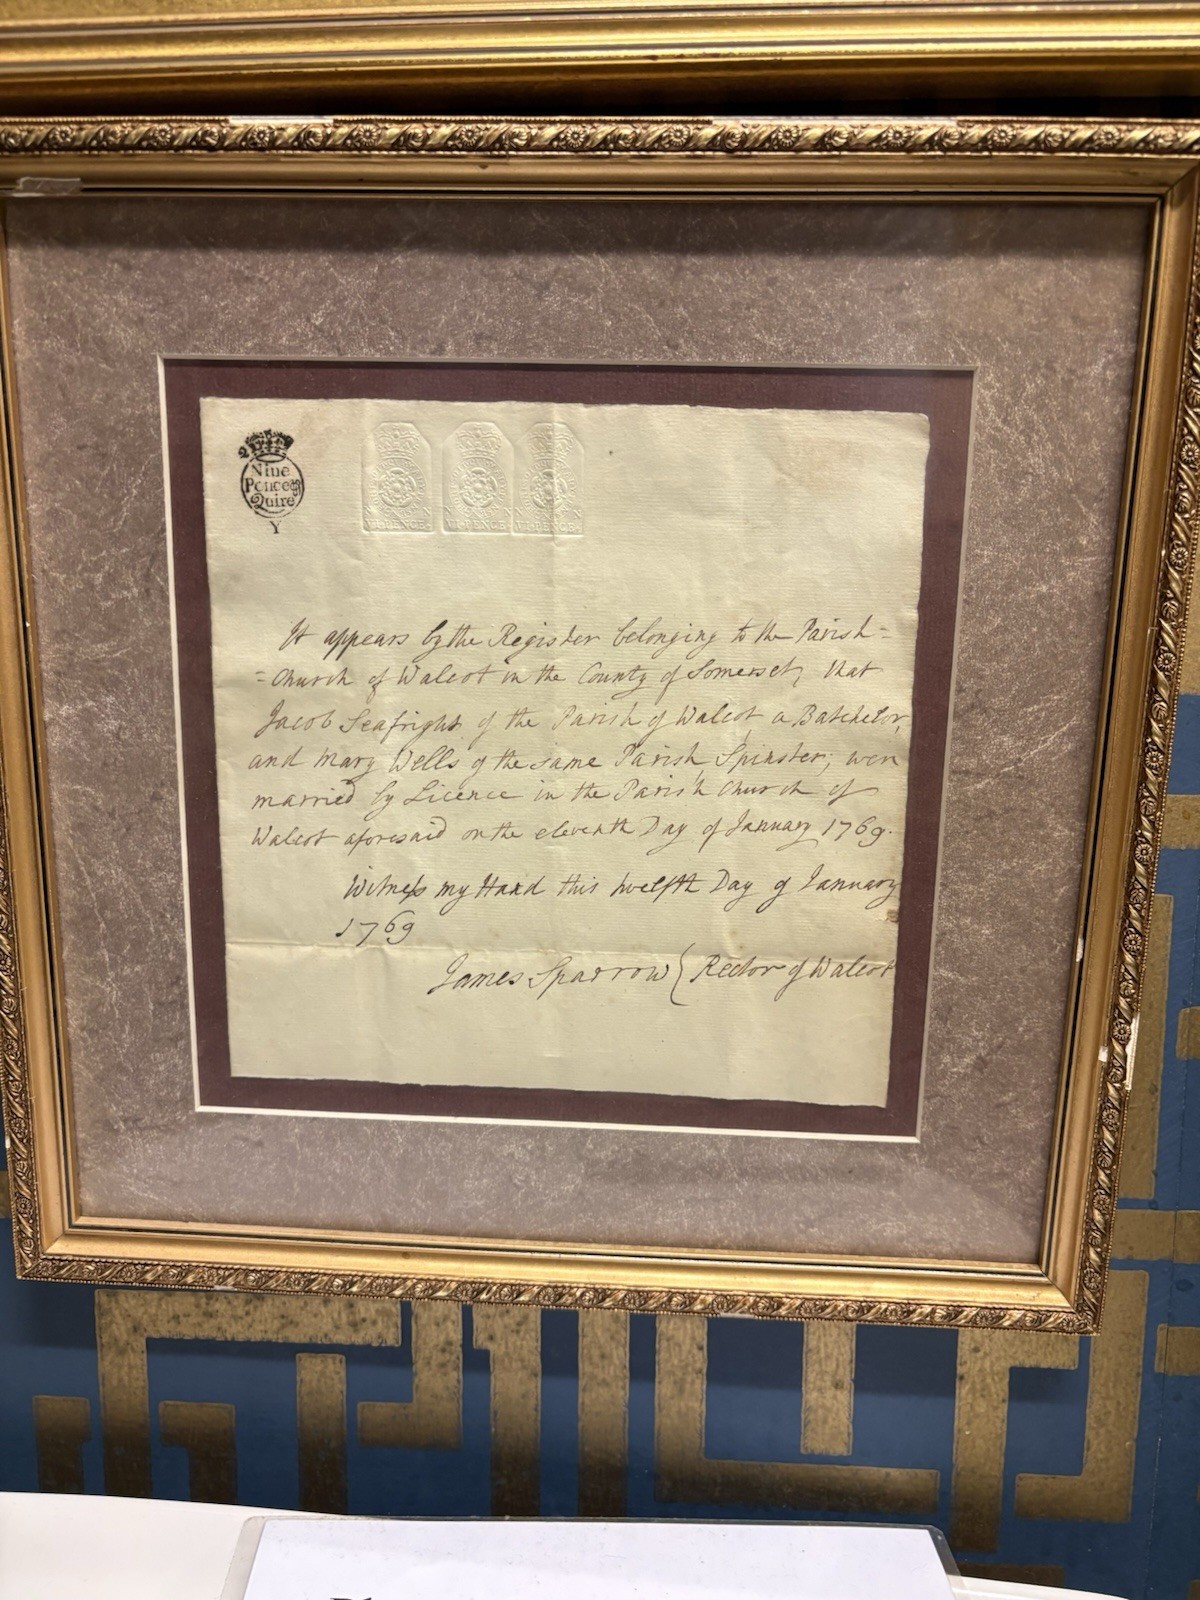 Nine
Pence ⅌
Quire
Y
VI·PENCE·
VI·PENCE
VI·PENCE·
It appears by the Register belonging to the Parish=
=Church of Walcot in the County of Somerset, that
Jacob Seafright of the Parish of Walcot a Batchelor,
and Mary Wells of the same Parish Spinster; were
married by Licence in the Parish Church of
Walcot aforesaid on the eleventh Day of January 1769.
Witneſs my Hand this twelfth Day of January
1769
James Sparrow { Rector of Walcot